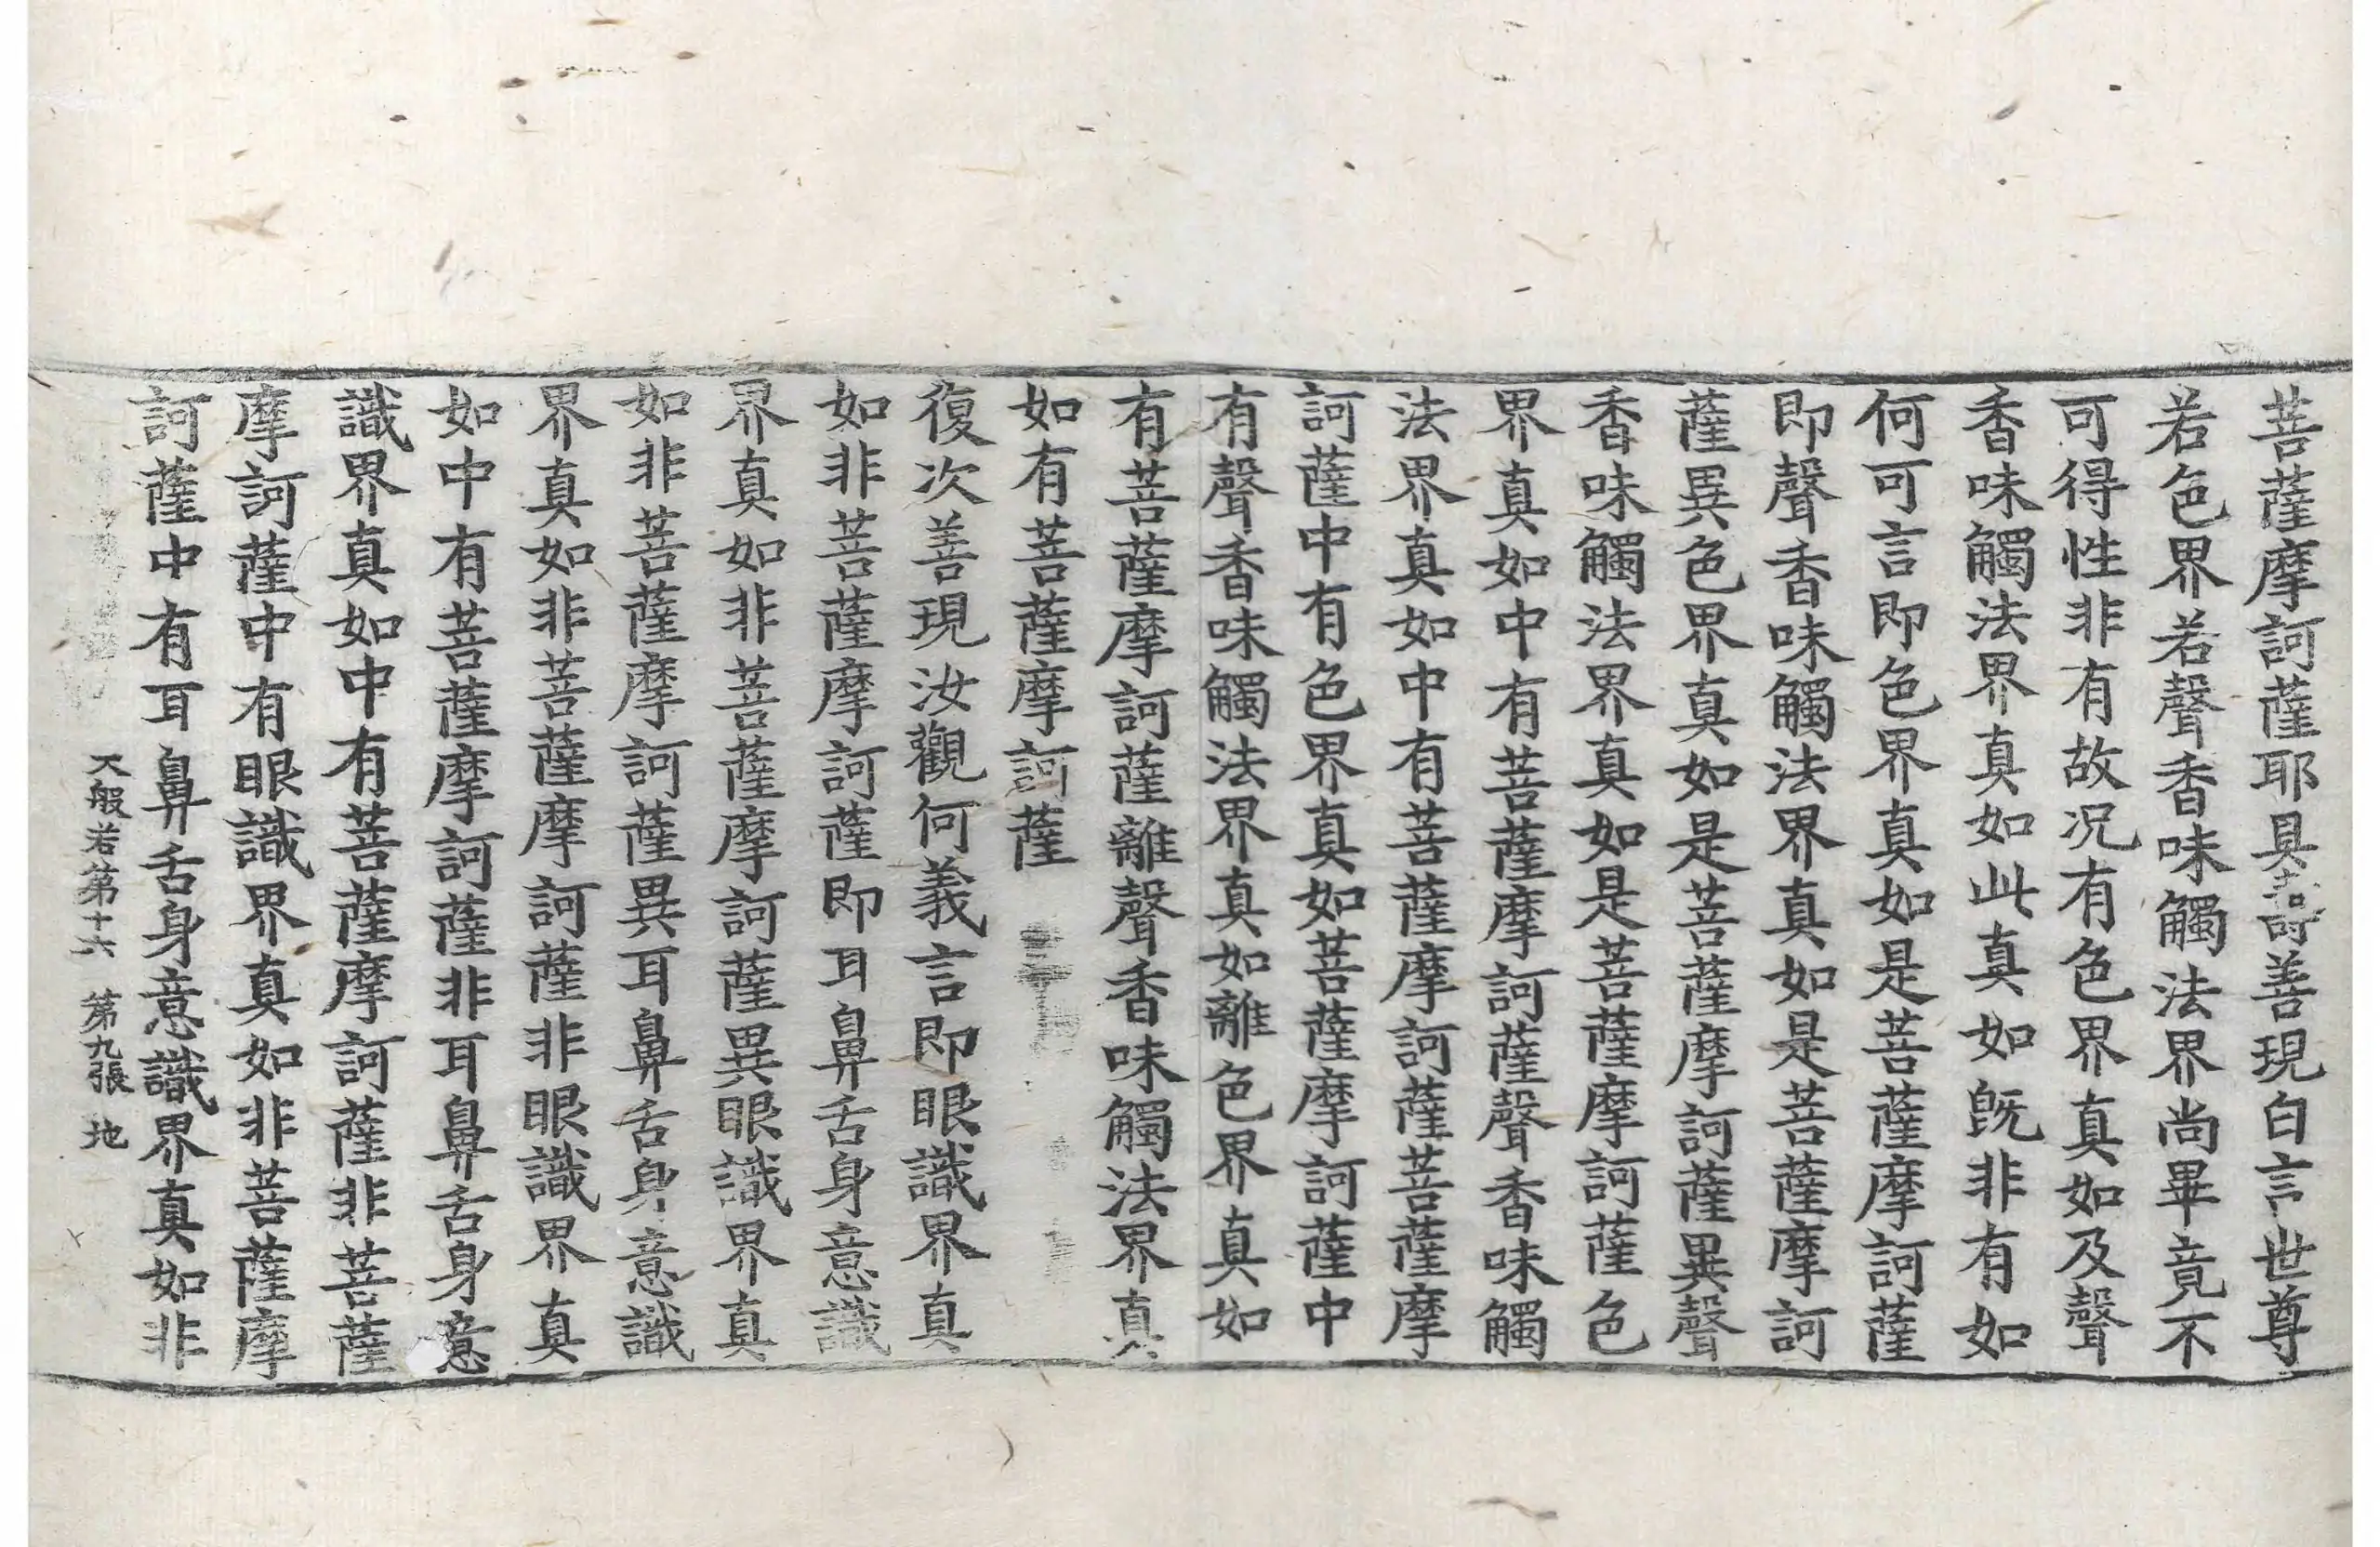 菩薩摩訶薩耶具壽善現白言世尊
若色界若聲香味觸法界尚畢竟不
可得性非有故况有色界真如及聲
香味觸法界真如此真如旣非有如
何可言即色界真如是菩薩摩訶薩
即聲香味觸法界真如是菩薩摩訶
薩異色界真如是菩薩摩訶薩異聲
香味觸法界真如是菩薩摩訶薩色
界真如中有菩薩摩訶薩聲香味觸
法界真如中有菩薩摩訶薩菩薩摩
訶薩中有色界真如菩薩摩訶薩中
有聲香味觸法界真如離色界真如
有菩薩摩訶薩離聲香味觸法界真
如有菩薩摩訶薩
復次善現汝觀何義言即眼識界真
如非菩薩摩訶薩即耳鼻舌身意識
界真如非菩薩摩訶薩異眼識界真
如非菩薩摩訶薩異耳鼻舌身意識
界真如非菩薩摩訶薩非眼識界真
如中有菩薩摩訶薩非耳鼻舌身意
識界真如中有菩薩摩訶薩非菩薩
摩訶薩中有眼識界真如非菩薩摩
訶薩中有耳鼻舌身意識界真如非
大般若第十六 第九張 地